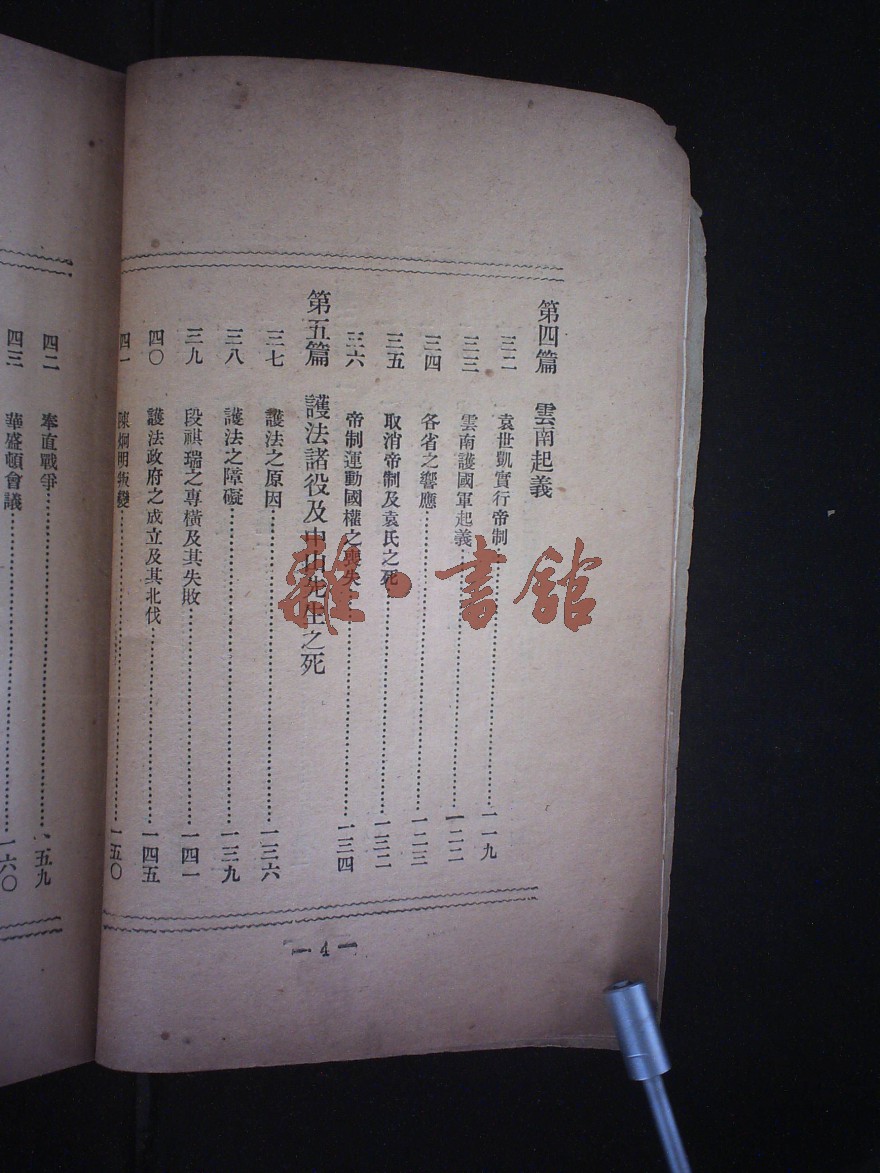 第四篇　雲南起義
三二　袁世凱實行帝制⋯⋯一一九
三三　雲南護國軍起義⋯⋯一二二
三四　各省之響應⋯⋯一二三
三五　取消帝制及袁氏之死⋯⋯一三二
三六　帝制運動國權之喪失⋯⋯一三四
第五篇　護法諸役及中山先生之死
三七　護法之原因⋯⋯一三六
三八　護法之障礙⋯⋯一三九
三九　段祺瑞之專橫及其失敗⋯⋯一四一
四〇　護法政府之成立及其北伐⋯⋯一四五
四一　陳烱明叛變⋯⋯一五〇
—4—
四二　奉直戰爭⋯⋯一五九
四三　華盛頓會議⋯⋯一六〇
雜·書館